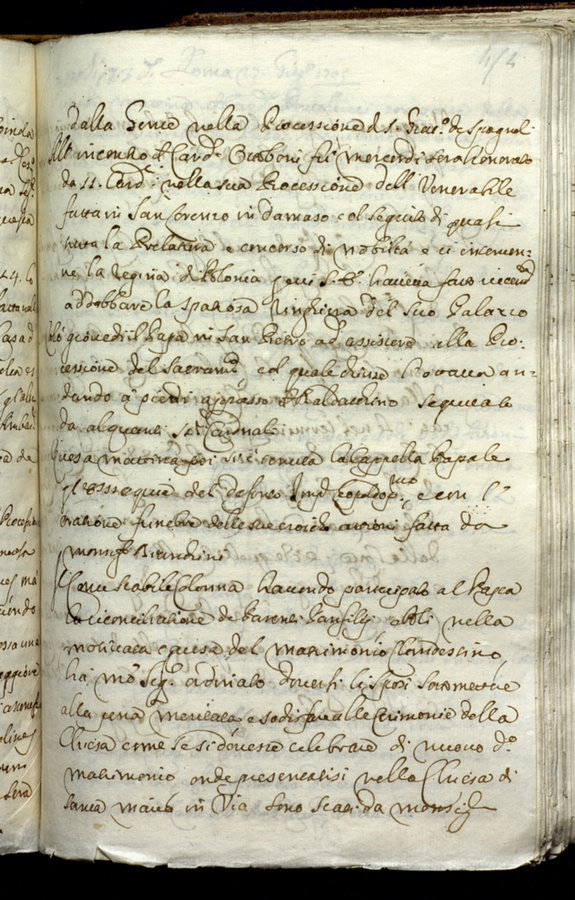 414
dalla Gente nella Processione di S. Giac.º de Spagnoli
All' incontro il Card. Ottoboni fù mercordì sera honorato
da 11. Card.i nella sua Processione dell' Venerabile
fatta in San Lorenzo in Damaso col seguito di quasi
tutta la Prelatura e concorso di nobiltà e ci interuen-
ne la Regina di Polonia a cui S. E. haueua fatto
addobbare la spatiosa Ringhiera del suo Palazzo
giouedì il Papa in San Pietro ad assistere alla Pro-
cessione del Sacram.to col quale an-
dando a piedi appresso il Baldacchino seguitato
da alquanti Sig.ri Cardinali
Questa mattina poi si è tenuta la Cappella Papale
p l'essequie del defonto Imp.re Leopoldo p.mo e con l'o-
ratione funebre delle sue eroiche attioni fatta da
Mons.r Bianchini
Il Contestabile Colonna hauendo partecipato al Papa
la riconciliatione de Parenti Panfilij nella
motiuata causa del matrimonio Clandestino
hà S.tà ordinato douersi li sposi sottomettere
alla pena meritata e sodisfare alle Cerimonie della
Chiesa come se si douesse celebrare di nuouo d.º
matrimonio onde presentatisi nella Chiesa di
Santa Maria in Via sono stati da Monsig.r